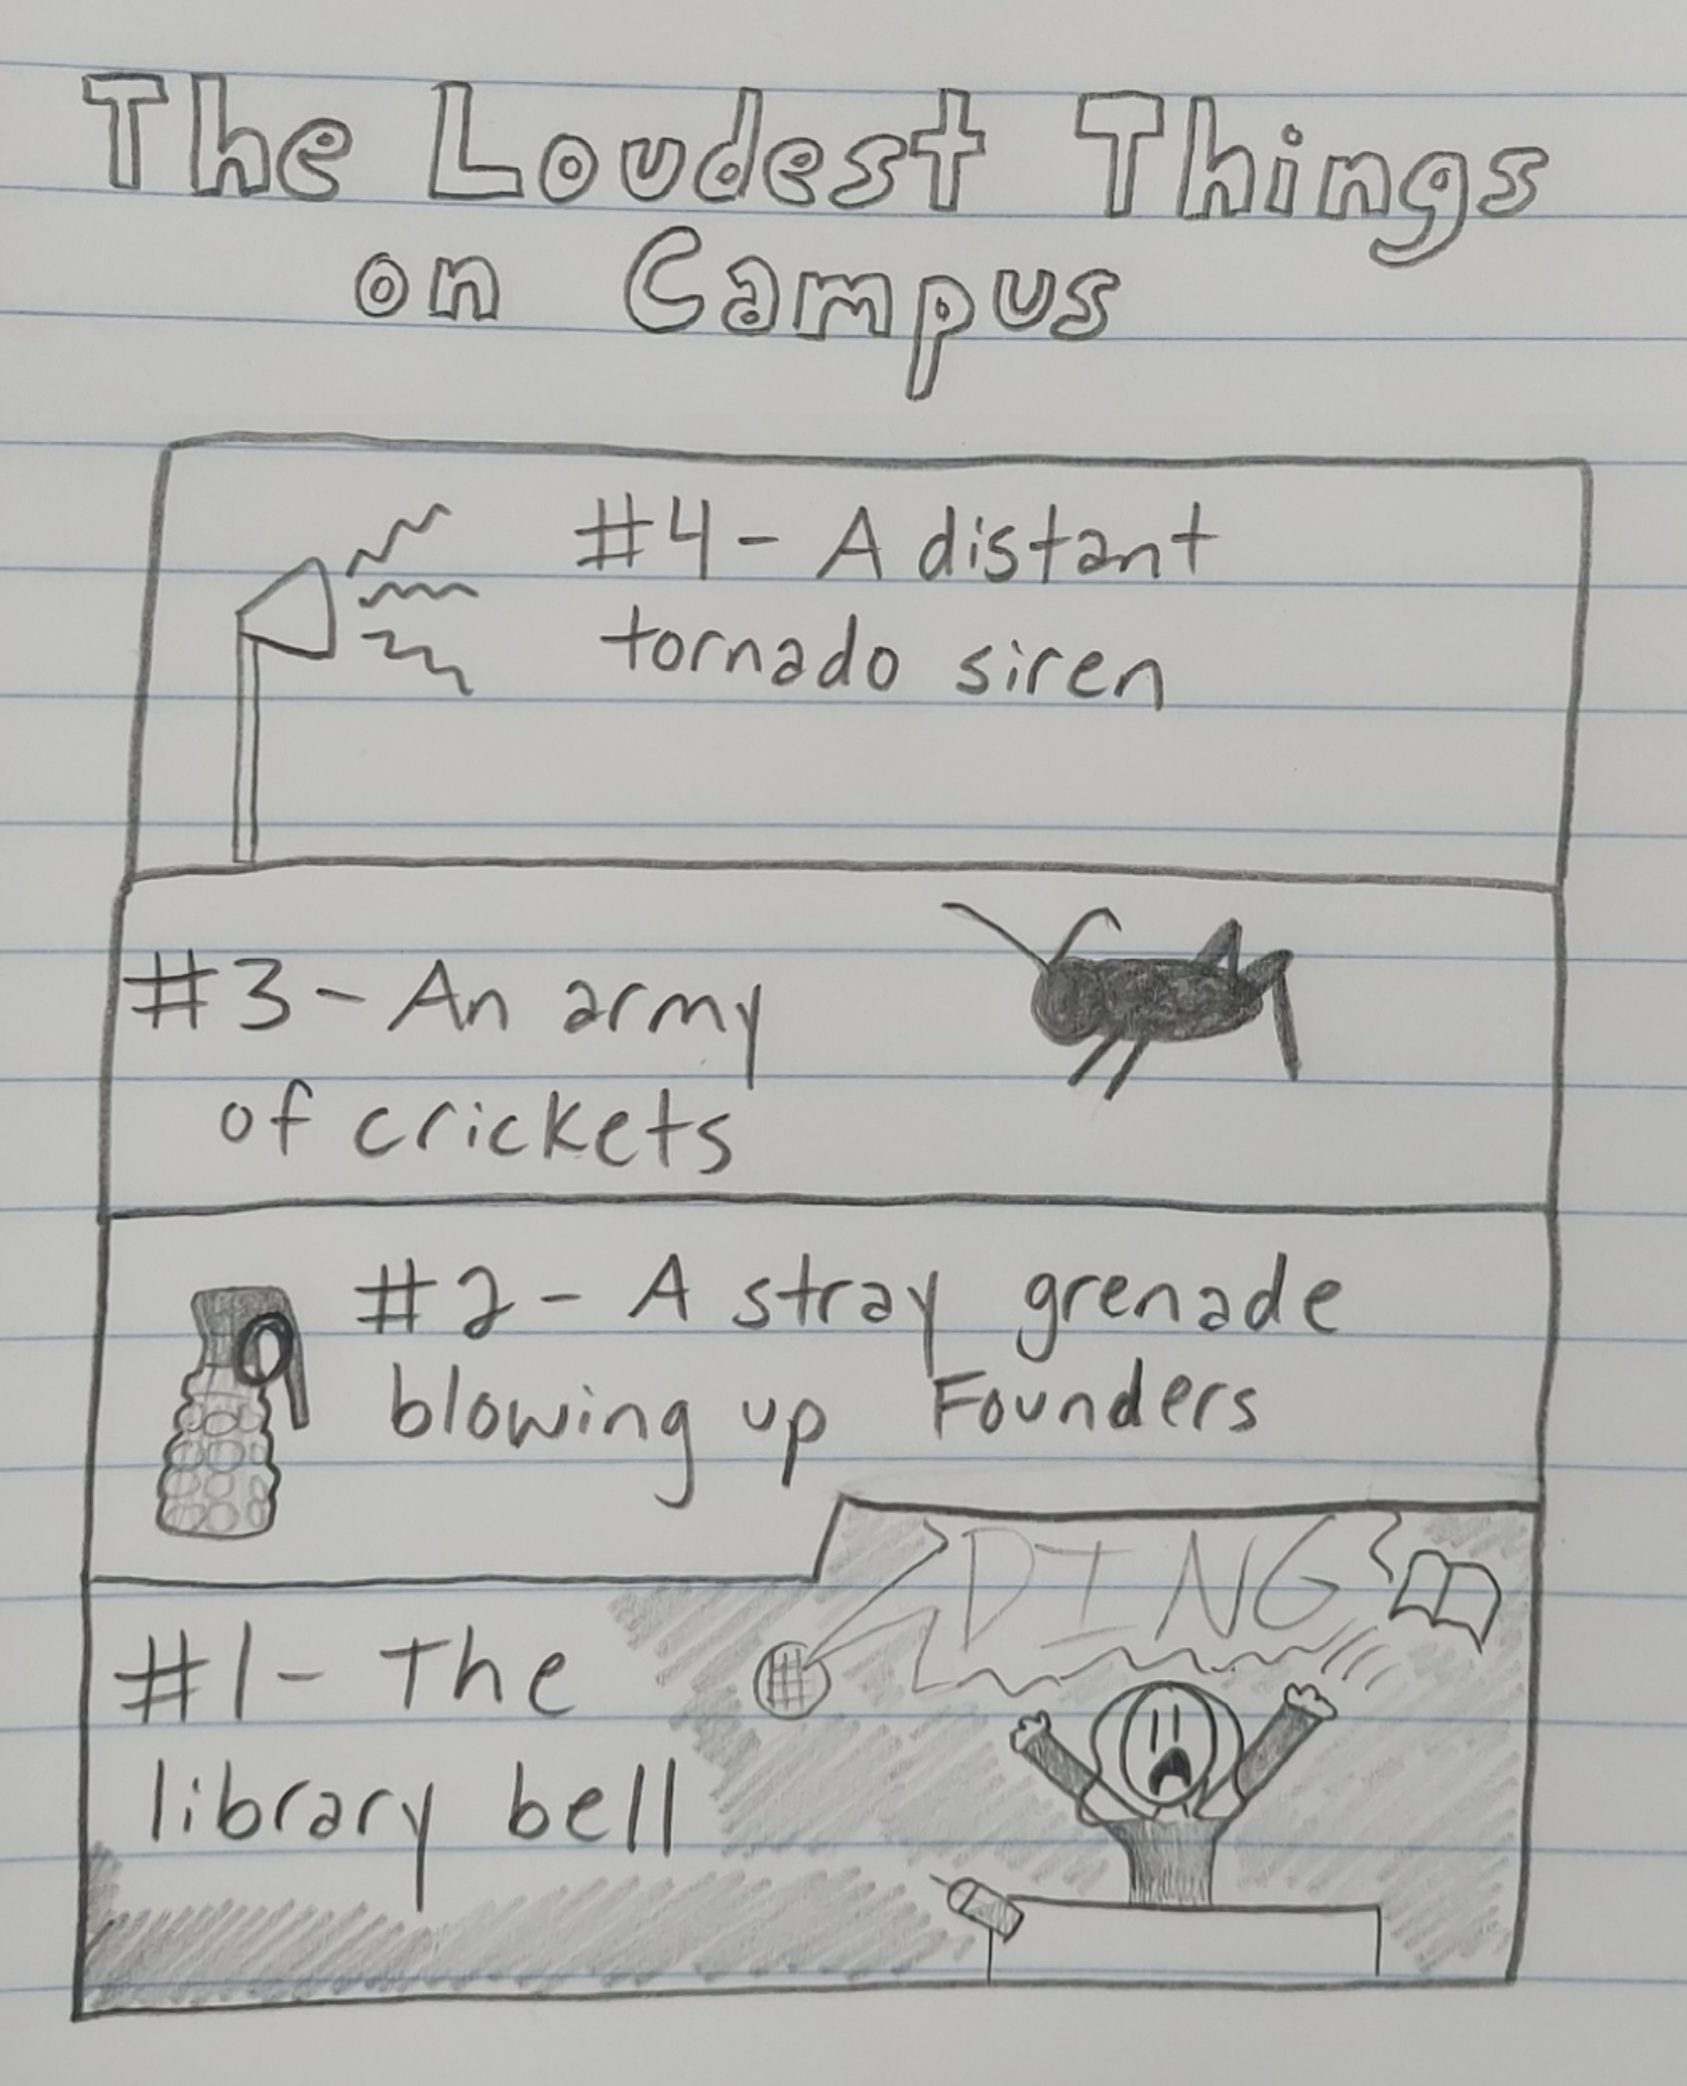 The Loudest Things
on Campus
#4 - A distant
tornado siren
#3 - An army
of crickets
#2 - A stray grenade
blowing up Founders
DING
#1 - The
library bell